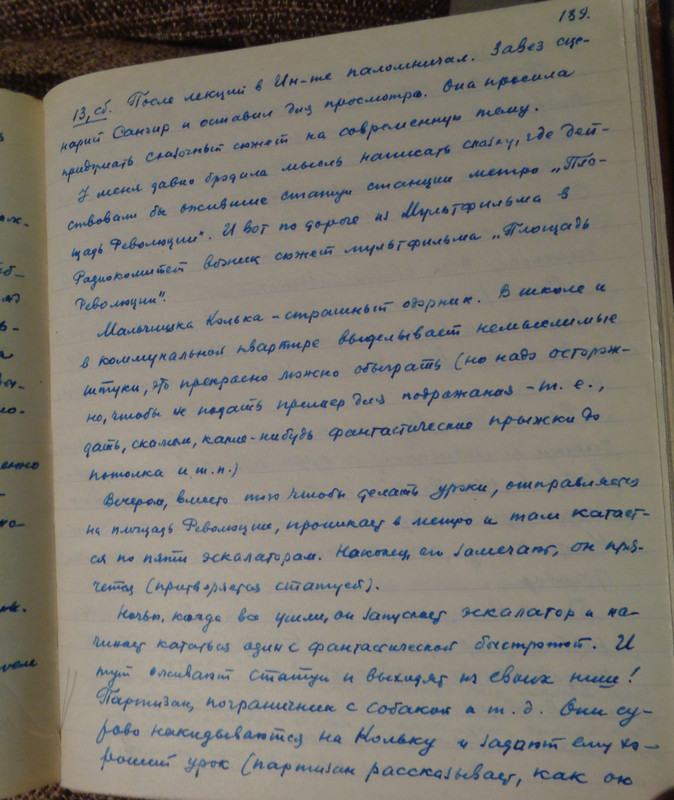 139.
13, сб. После лекций в Ин-те паломничал. Завез сце-
нарий Сапгир и оставил для просмотра. Она просила
придумать сказочный сюжет на современную тему.
У меня давно бродила мысль написать сказку, где дей-
ствовали бы ожившие статуи станции метро „Пло-
щадь Революции". И вот по дороге из Мультфильма в
Радиокомитет возник сюжет мультфильма „Площадь
Революции".
Мальчишка Колька – страшный озорник. В школе и
в коммунальной квартире выделывает немыслимые
штуки, это прекрасно можно обыграть (но надо осторож-
но, чтобы не подать пример для подражания – т. е.,
дать, скажем, какие-нибудь фантастические прыжки до
потолка и т.п.)
Вечером, вместо того чтобы делать уроки, отправляется
на площадь Революции, проникает в метро и там катает-
ся по пяти эскалаторам. Наконец, его замечают, он пря-
чется (притворяется статуей).
Ночью, когда все ушли, он запускает эскалатор и на-
чинает кататься один с фантастической быстротой. И
тут оживают статуи и выходят из своих ниш!
Партизан, пограничник с собакой и т. д. Они су-
рово накидываются на Кольку и задают ему хо-
роший урок (партизан рассказывает, как он